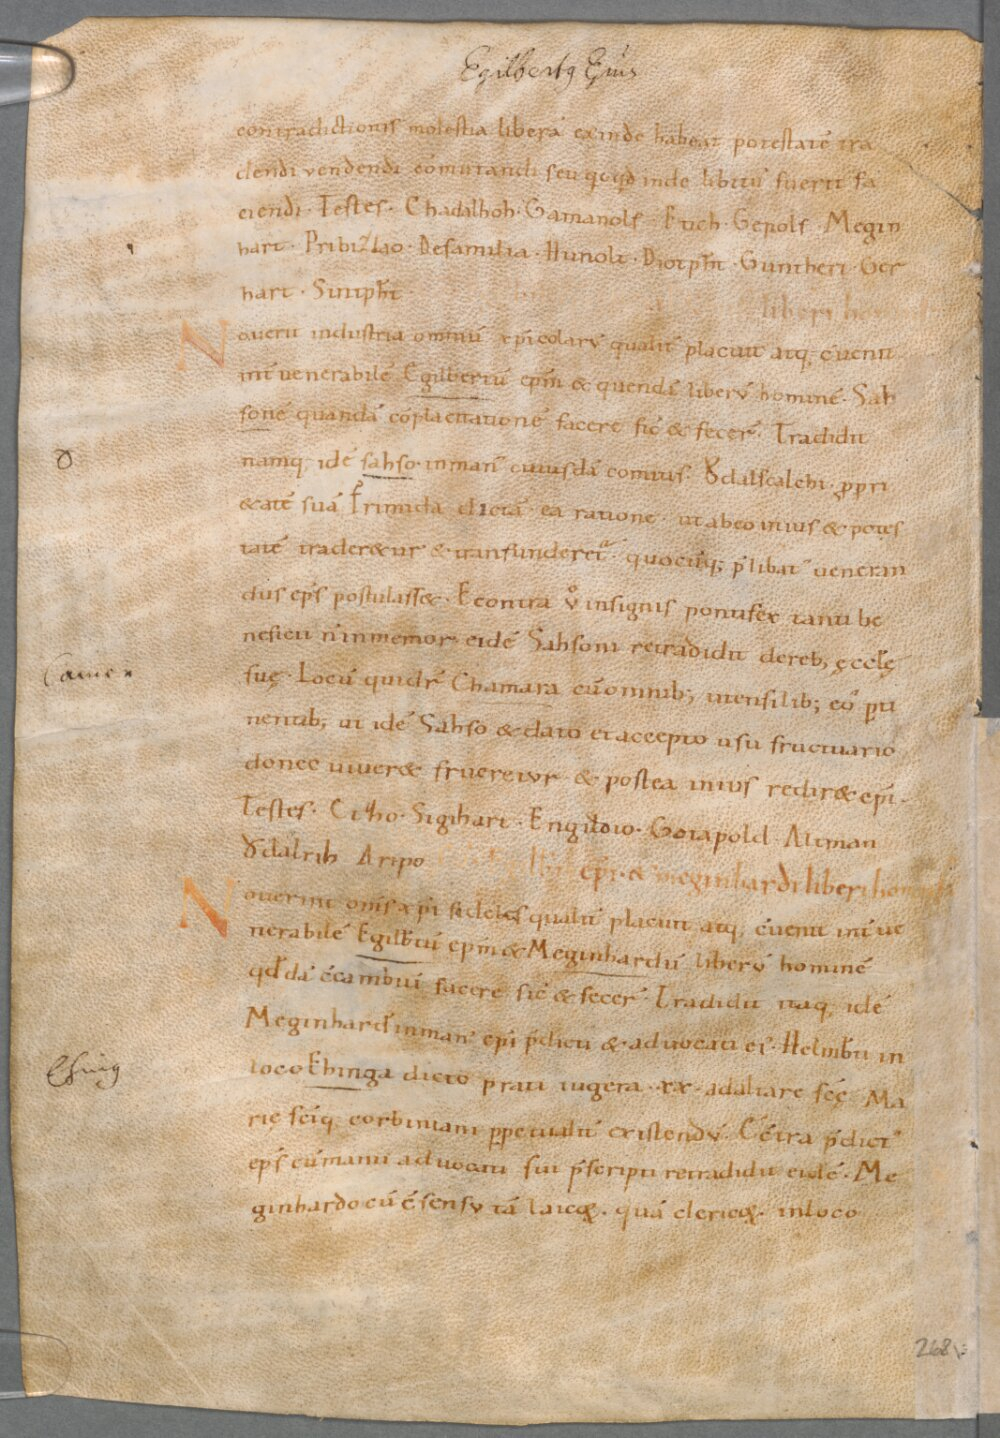 Egilbertꝰ Ep̄us
contradictionis molestia liberā exinde habeat potestatē tra
dendi vendendi cōmutandi seu qͥcqͥd inde libitū fuerit fa
ciendi · Testes · Chadalhoh · Gamanolf · Etich · Gepolf · Megin
hart · Pribizlao · De familia · Hunolt · Diotpͥht · Guntheri · Ger
hart · Sintpͥht ·
liberi ho
Noverit industria omniū xp̄icolarū qualit̄ placuit atq; c̄uenit
int̄ venerabilē Egilbertū ep̄m & quendā liberū hominē · Sah
sonē quandā cōplacitationē facere sic̄ & fecer̄ · Tradidit
namq; idē sahso in manū cuiusdā comitis · Ŏdalscalchi · ꝓpri
&atē suā frimida dictā · ea ratione · ut ab eo in ius & potes
tatē trader&ur & transfunderet᷑ · quocūq; p̄libat᷒ veneran
8
dus ep̄s postulass& · Econtra v̊ insignis pontifex tanti be
neficii n̄ inmemor eidē Sahsoni retradidit de reb; ęccl̄ę
Camer
suę · Locū quidē Chamara cū omnib; utensilib; eō p̱ti
nentib; ut idē Sahso & dato et accepto usu fructuario
donec viver& frueretur & postea in ius redir& ep̄i ·
Testes · Citho · Sigihart · Engildio · Gotapold · Altman
Ŏdalrih Aripo
ep̄i · & meginhardi liberi hominis
Noverint om̄s xp̄i fideles qualit̄ placuit atq; c̄uenit int̄ ve
nerabilē Egilb̄tū ep̄m & Meginhardū liberū hominē
qd̄dā c̄cambiū facere sic̄ & fecer̄ · Tradidit itaq; idē
Meginhard᷒ in man᷒ ep̄i p̄dicti & advocati ei᷒ · Helmb̄ti in
Ehing
loco Ehinga dicto prati iugera · xx · ad altare sc̄ę Ma
rię sc̄iq; corbiniani ꝑpetualit̄ existendū · C̄tra p̄dict᷒
ep̄s cū manu advocati sui p̄scripti retradidit eidē · Me
ginhardo cū c̄sensu tā laicoꝝ · quā clericoꝝ · in loco
268v